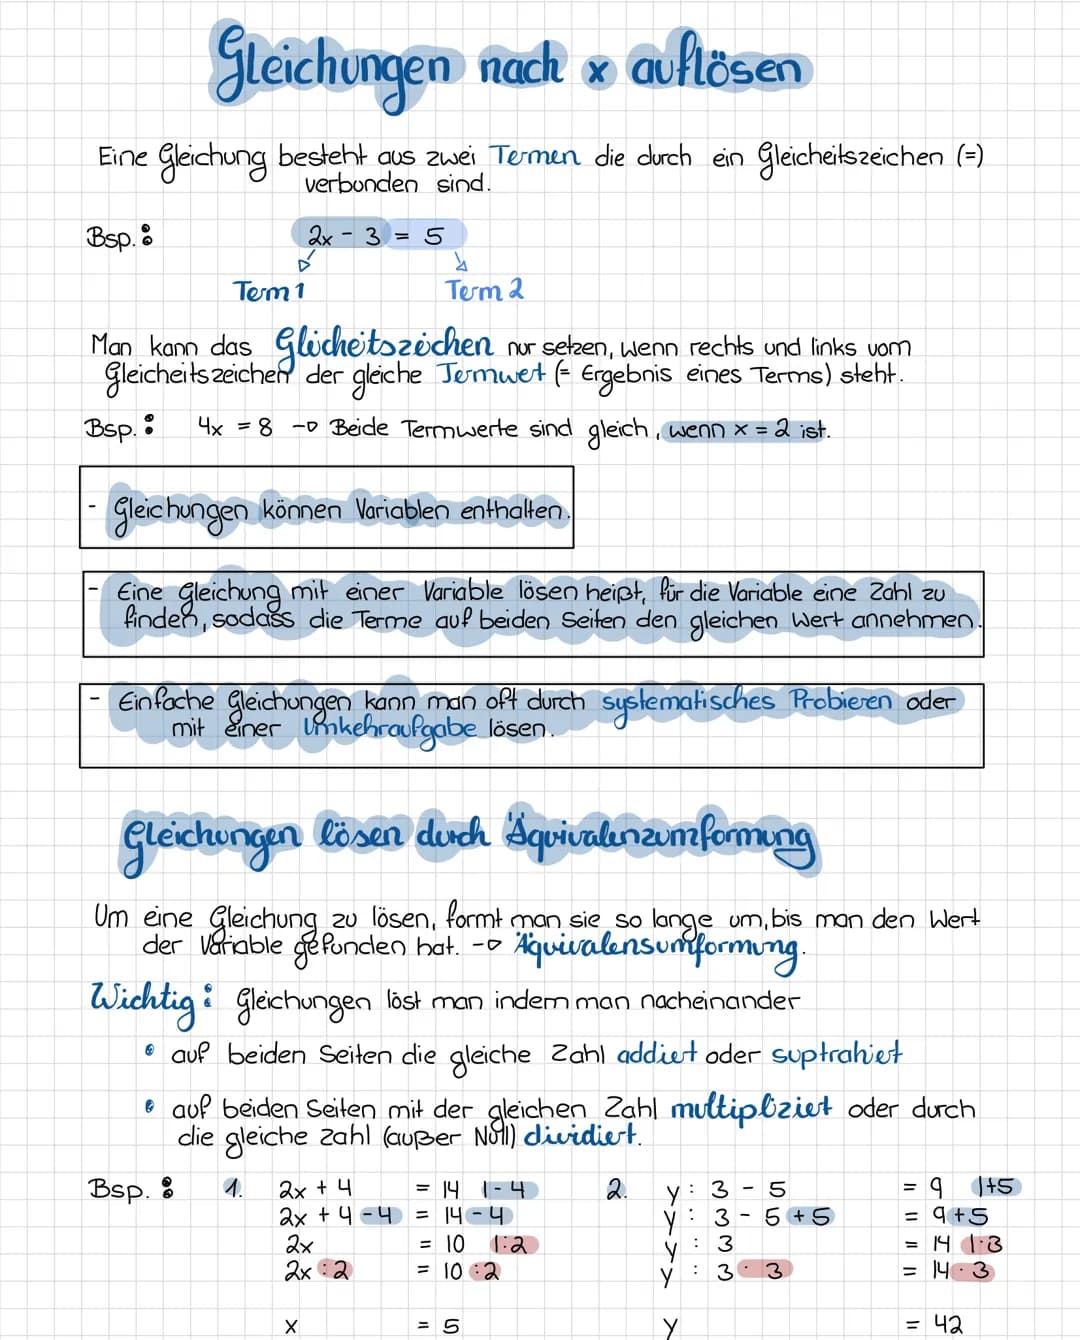 Gleichungen nach x auflösen
Eine Gleichung besteht aus zwei Termen die durch ein Gleicheitszeichen (=)
verbunden sind.
Bsp.: 2x - 3 = 5
Term 1 Term 2
Man kann das Glicheitszeichen nur setzen, wenn rechts und links vom
Gleicheitszeichen der gleiche Termwert (= Ergebnis eines Terms) steht.
Bsp.: 4x = 8 -▷ Beide Termwerte sind gleich, wenn x = 2 ist.
- Gleichungen können Variablen enthalten.
- Eine Gleichung mit einer Variable lösen heißt, für die Variable eine Zahl zu
finden, sodass die Terme auf beiden Seiten den gleichen Wert annehmen.
- Einfache Gleichungen kann man oft durch systematisches Probieren oder
mit einer Umkehraufgabe lösen.
Gleichungen lösen durch Äquivalenzumformung
Um eine Gleichung zu lösen, formt man sie so lange um, bis man den Wert
der Variable gefunden hat. -▷ Äquivalensumformung.
Wichtig: Gleichungen löst man indem man nacheinander
• auf beiden Seiten die gleiche Zahl addiert oder suptrahiert
• auf beiden Seiten mit der gleichen Zahl multipliziert oder durch
die gleiche Zahl (außer Null) dividiert.
Bsp.: 1. 2x + 4 = 14 |-4 2. y : 3 - 5 = 9 |+5
2x + 4 - 4 = 14 - 4 y : 3 - 5 + 5 = 9 + 5
2x = 10 |:2 y : 3 = 14 |·3
2x : 2 = 10 : 2 y : 3 · 3 = 14 · 3
x = 5 y = 42